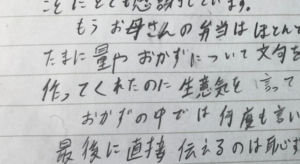 ことにとても感謝しています。
もうお母さんの弁当はほとんど
たまに量やおかずについて文句を
作ってくれたのに生意気を言って
おかずの中では何度も言い
最後に直接伝えるのは恥ず